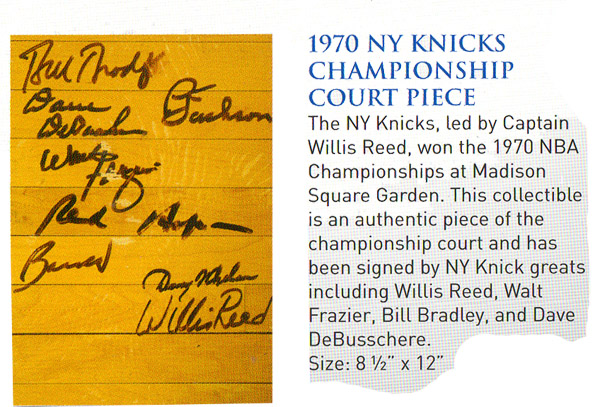 Dave
DeBusschere
Jackson
Walt Frazier
Red Holz
Barnett
Willis Reed
1970 NY KNICKS
CHAMPIONSHIP
COURT PIECE
The NY Knicks, led by Captain
Willis Reed, won the 1970 NBA
Championships at Madison
Square Garden. This collectible
is an authentic piece of the
championship court and has
been signed by NY Knick greats
including Willis Reed, Walt
Frazier, Bill Bradley, and Dave
DeBusschere.
Size: 8 ½” x 12”